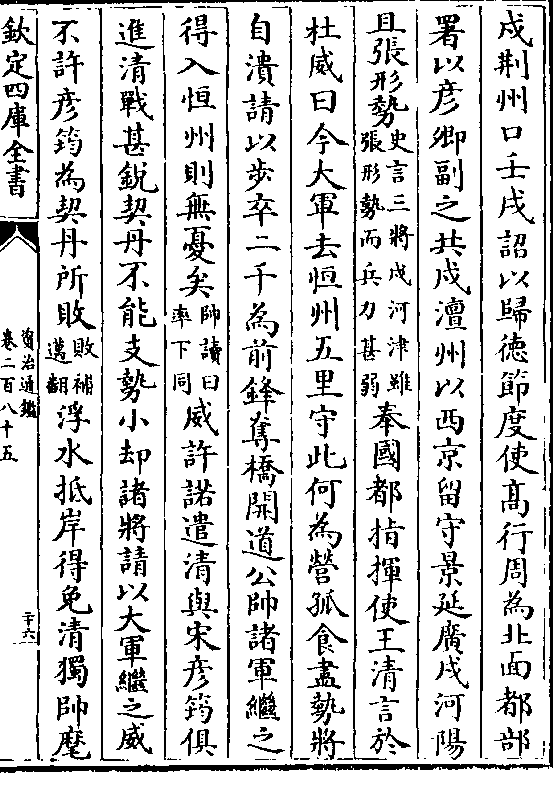 戍荆州口壬戌詔以歸徳節度使髙行周為北面都部
署以彦卿副之共戍澶州以西京留守景延廣戍河陽
且張形勢史言三將戍河津雖張形勢而兵力甚弱奉國都指揮使王清言於
杜威曰今大軍去恒州五里守此何為營孤食盡勢將
自潰請以歩卒二千為前鋒奪橋開道公帥諸軍繼之
得入恒州則無憂矣帥讀曰率下同威許諾遣清與宋彦筠俱
進清戰甚鋭契丹不能支勢小却諸將請以大軍繼之威
不許彦筠為契丹所敗敗補邁翻浮水抵岸得免清獨帥麾
欽定四庫全書
資治通鑑
卷二百八十五
二十六